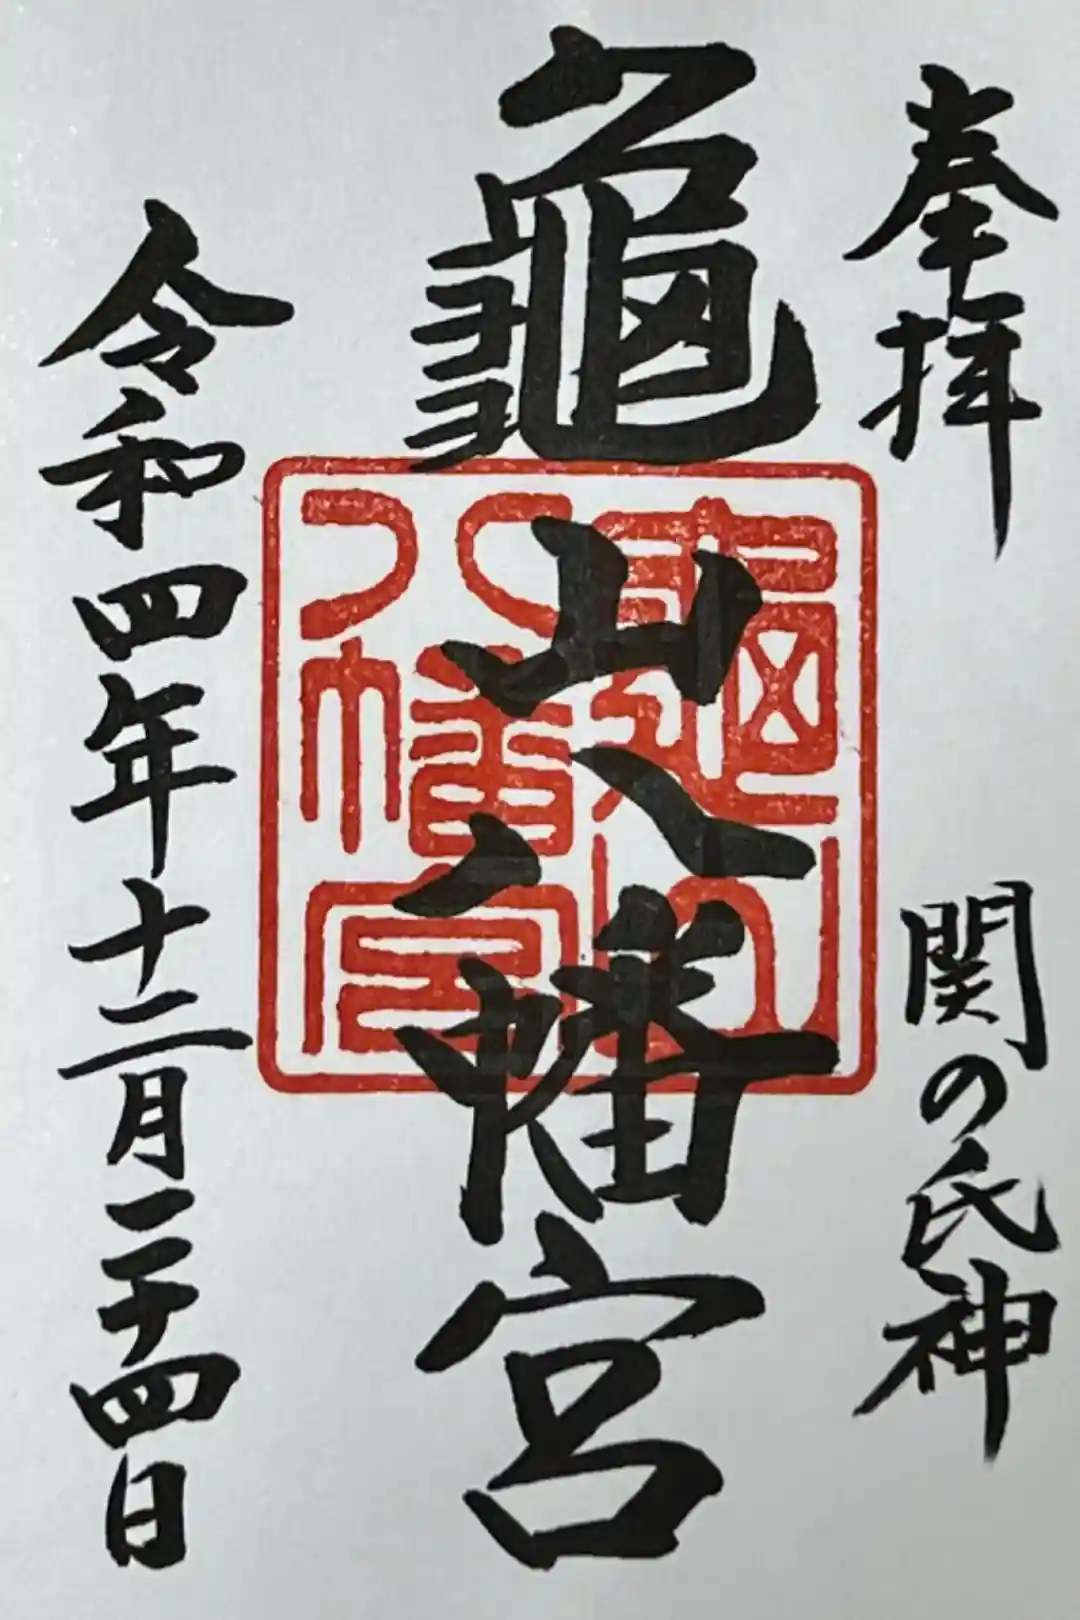 奉拝
関の氏神
龜山八幡宮
令和四年十二月二十四日
龜山
八幡宮